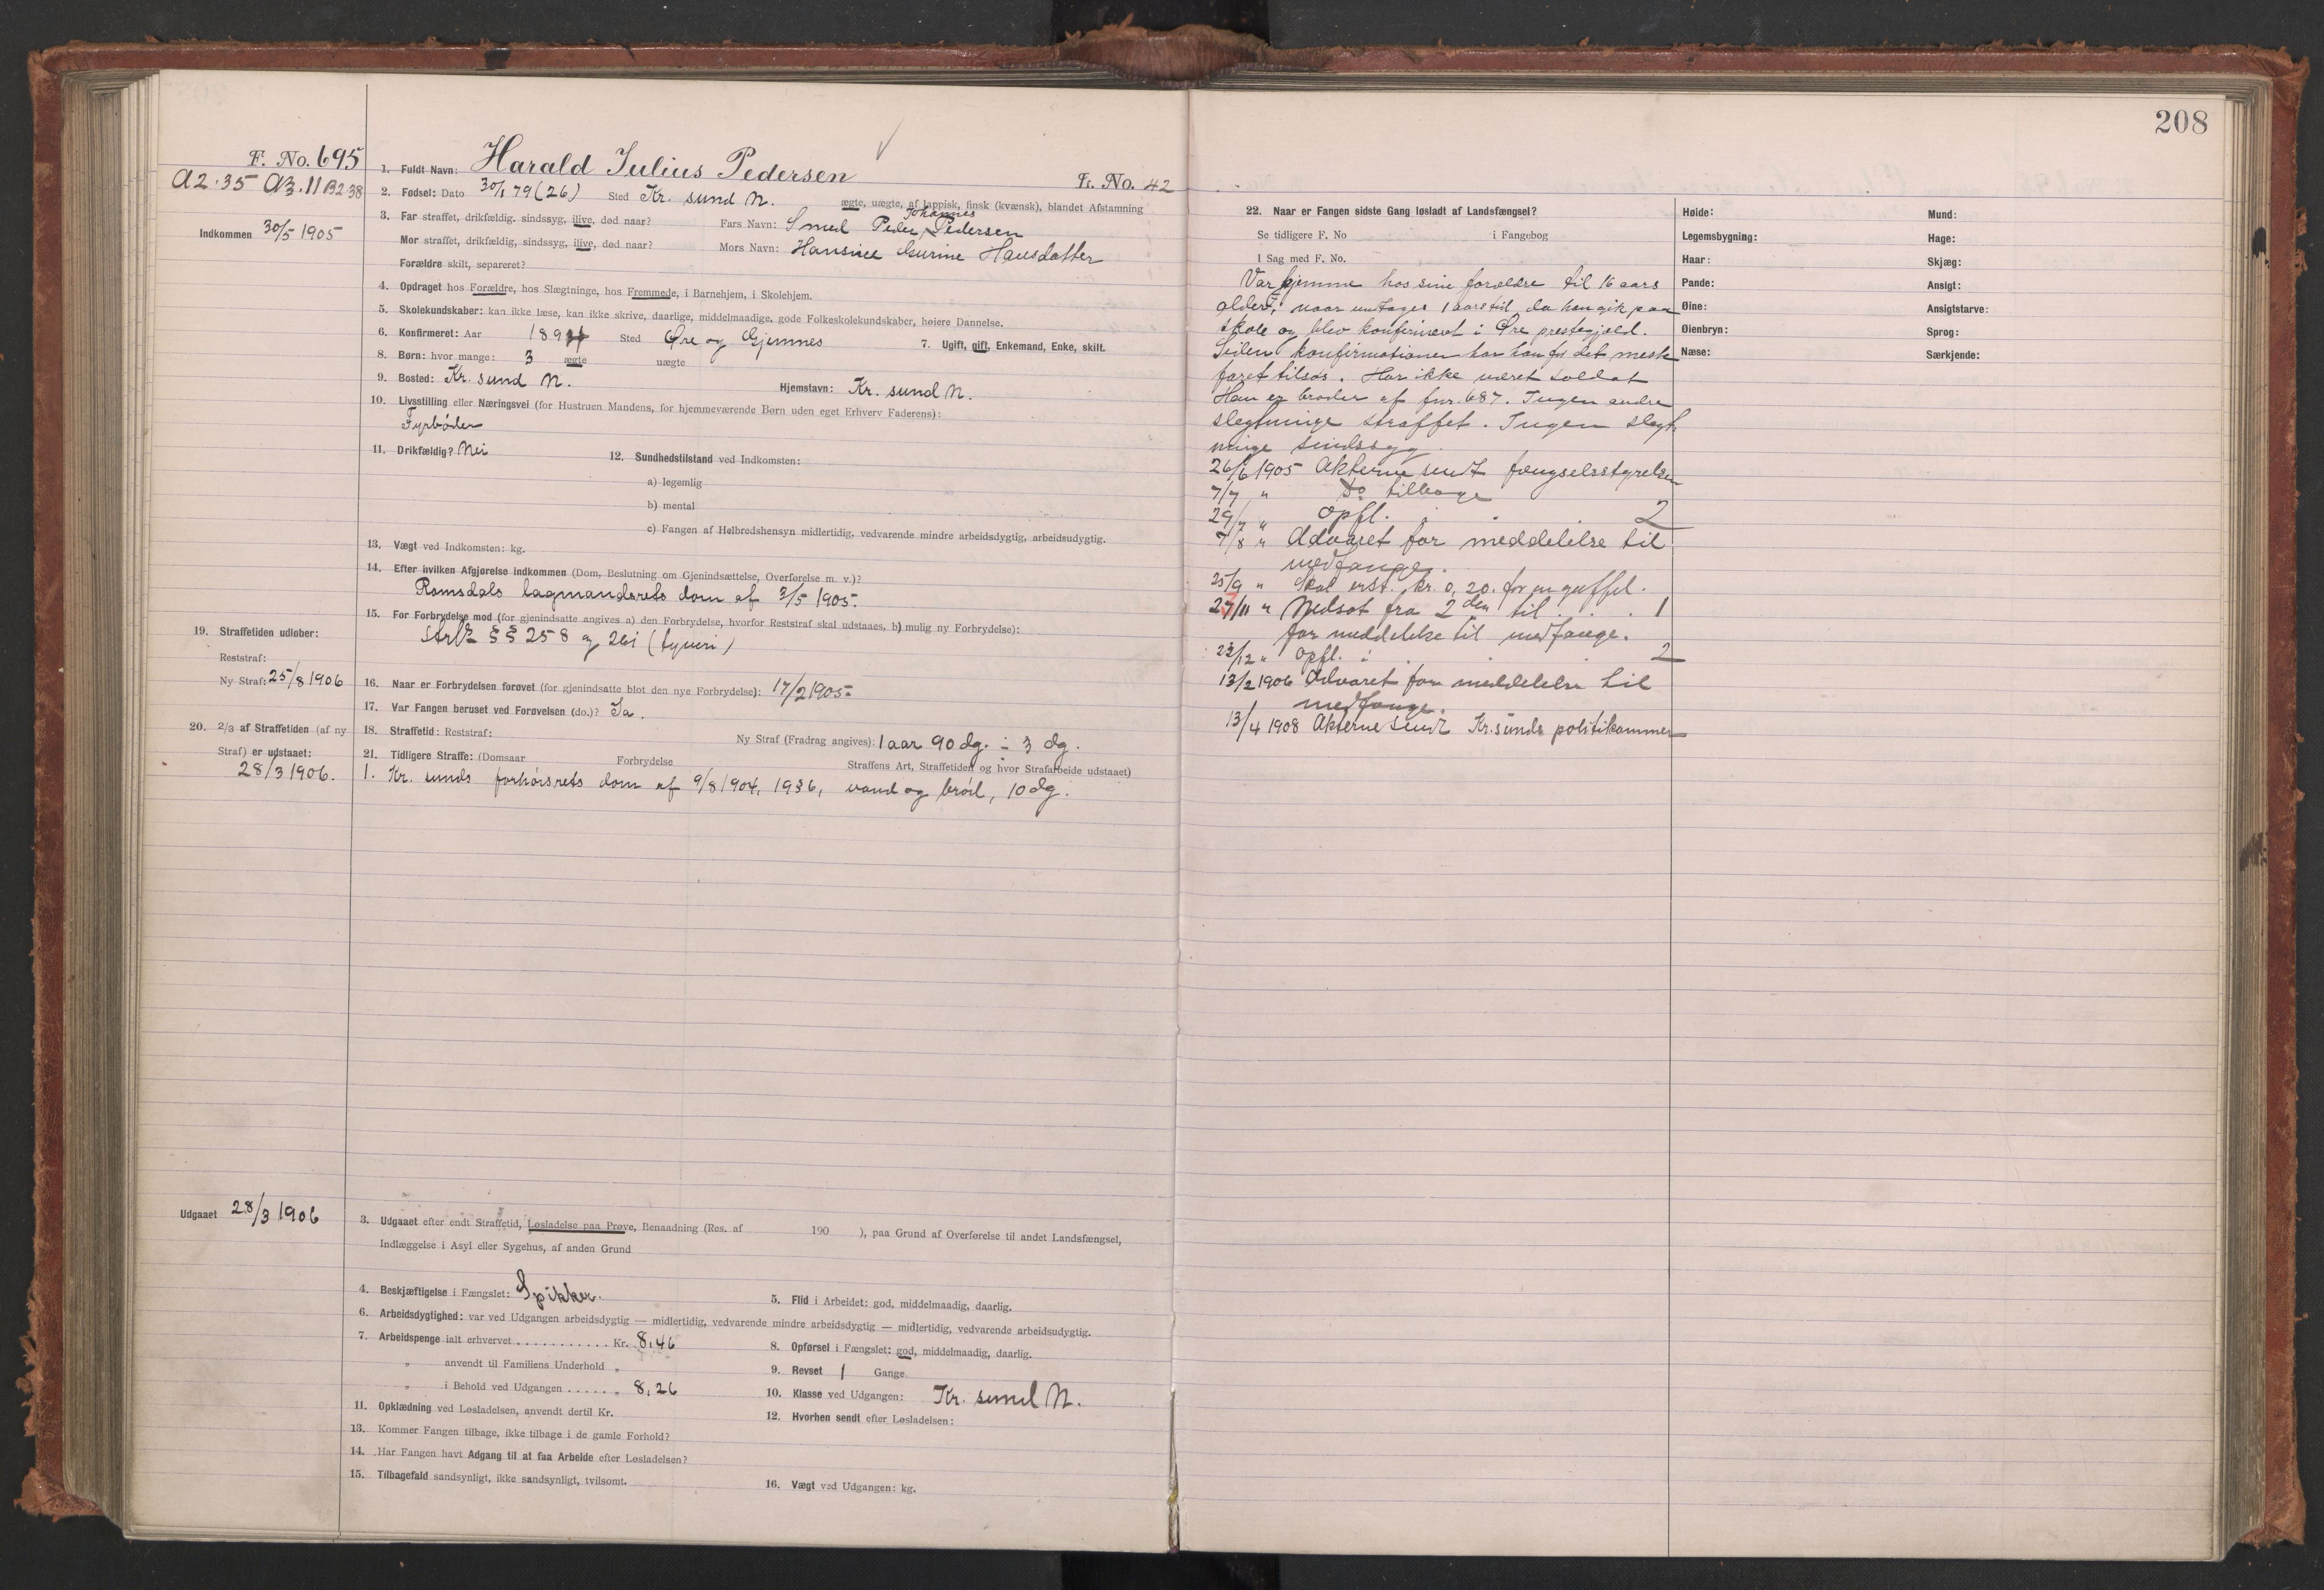 208
F. No. 695
A2.35 A3.11 B2.38
Indkommen 30/5 1905
1. Fuldt Navn: Harald Julius Pedersen
Fr. No. 42
2. Fødsel: Dato 30/1 79 (26) Sted Kr. sund N. ægte, uægte, af lappisk, finsk (kvænsk), blandet Afstamning
3. Far straffet, drikfældig, sindssyg, ilive, død naar? Fars Navn: Smed Peder Johannes Pedersen
Mor straffet, drikfældig, sindssyg, ilive, død naar? Mors Navn: Hansine Gurine Hansdatter
Forældre skilt, separeret?
4. Opdraget hos Forældre, hos Slægtninge, hos Fremmede, i Barnehjem, i Skolehjem.
5. Skolekundskaber: kan ikke læse, kan ikke skrive, daarlige, middelmaadige, gode Folkeskolekundskaber, høiere Dannelse.
6. Konfirmeret: Aar 189 Sted Øre og Gjemnes 7. Ugift, gift, Enkemand, Enke, skilt.
8. Børn: hvor mange: 3 ægte uægte
9. Bosted: Kr. sund N. Hjemstavn: Kr. sund N.
10. Livsstilling eller Næringsvei (for Hustruen Mandens, for hjemmeværende Børn uden eget Erhverv Faderens):
Fyrbøder
11. Drikfældig? Nei 12. Sundhedstilstand ved Indkomsten:
a) legemlig
b) mental
c) Fangen af Helbredshensyn midlertidig, vedvarende mindre arbeidsdygtig, arbeidsudygtig.
13. Vægt ved Indkomsten: kg.
14. Efter hvilken Afgjørelse indkommen (Dom, Beslutning om Gjenindsættelse, Overførelse m. v.)?
Romsdals lagmandsrets dom af 3/5 1905.
15. For Forbrydelse mod (for gjenindsatte angives a) den Forbrydelse, hvorfor Reststraf skal udstaaes, b) mulig ny Forbrydelse):
§§ 258 og 261 (tyveri)
19. Straffetiden udløber:
Reststraf:
Ny Straf: 25/8 1906
16. Naar er Forbrydelsen forøvet (for gjenindsatte blot den nye Forbrydelse): 17/2 1905.
17. Var Fangen beruset ved Forøvelsen (do.)? Ja.
20. 2/3 af Straffetiden (af ny
Straf) er udstaaet:
28/3 1906.
18. Straffetid: Reststraf: Ny Straf (Fradrag angives): 1 aar 90 dg. ÷ 3 dg.
21. Tidligere Straffe: (Domsaar Forbrydelse Straffens Art, Straffetiden og hvor Strafarbeide udstaaet)
1. Kr. sunds forhørsrets dom af 9/8 1904, 1936, vand og brød, 10 dg.
Udgaaet 28/3 1906
3. Udgaaet efter endt Straffetid, Løsladelse paa Prøve, Benaadning (Res. af 190 ), paa Grund af Overførelse til andet Landsfængsel,
Indlæggelse i Asyl eller Sygehus, af anden Grund
4. Beskjæftigelse i Fængslet: Spikker. 5. Flid i Arbeidet: god, middelmaadig, daarlig.
6. Arbeidsdygtighed: var ved Udgangen arbeidsdygtig — midlertidig, vedvarende mindre arbeidsdygtig — midlertidig, vedvarende arbeidsudygtig.
7. Arbeidspenge ialt erhvervet ........... Kr. 8,46 8. Opførsel i Fængslet: god, middelmaadig, daarlig.
„ anvendt til Familiens Underhold „ 9. Revset 1 Gange.
„ i Behold ved Udgangen ...... „ 8,26 10. Klasse ved Udgangen:
11. Opklædning ved Løsladelsen, anvendt dertil Kr. 12. Hvorhen sendt efter Løsladelsen: Kr. sund N.
13. Kommer Fangen tilbage, ikke tilbage i de gamle Forhold?
14. Har Fangen havt Adgang til at faa Arbeide efter Løsladelsen?
15. Tilbagefald sandsynligt, ikke sandsynligt, tvilsomt. 16. Vægt ved Udgangen: kg.
22. Naar er Fangen sidste Gang løsladt af Landsfængsel?
Se tidligere F. No i Fangebog
I Sag med F. No.
Var hjemme hos sine forældre til 16 aars
alder, naar undtages 1 aars tid da han gik paa
skole og blev konfirmeret i Øre prestegjæld.
Siden konfirmationen har han for det meste
faret tilsøs. Har ikke været soldat
Han er broder af fnr. 687. Ingen andre
slegtninge straffet. Ingen slegt-
ninge sindssyg
26/6 1905 Akterne sendt fængselsstyrelsen
7/7 „ Do tilbage
29/7 „ Opfl. i . . 2
7/8 „ Advaret for meddelelse til
medfange.
25/9 „ Skal erst. kr. 0,20 for en gaffel.
27/11 „ Nedsat fra 2den til . . 1
for meddelelse til medfange.
23/12 „ Opfl. i . . 2
13/2 1906 Advaret for meddelelse til
medfange.
13/4 1908 Akterne sendt Kr.sunds politikammer
Høide:
Legemsbygning:
Haar:
Pande:
Øine:
Øienbryn:
Næse:
Mund:
Hage:
Skjæg:
Ansigt:
Ansigtstarve:
Sprog:
Særkjende: